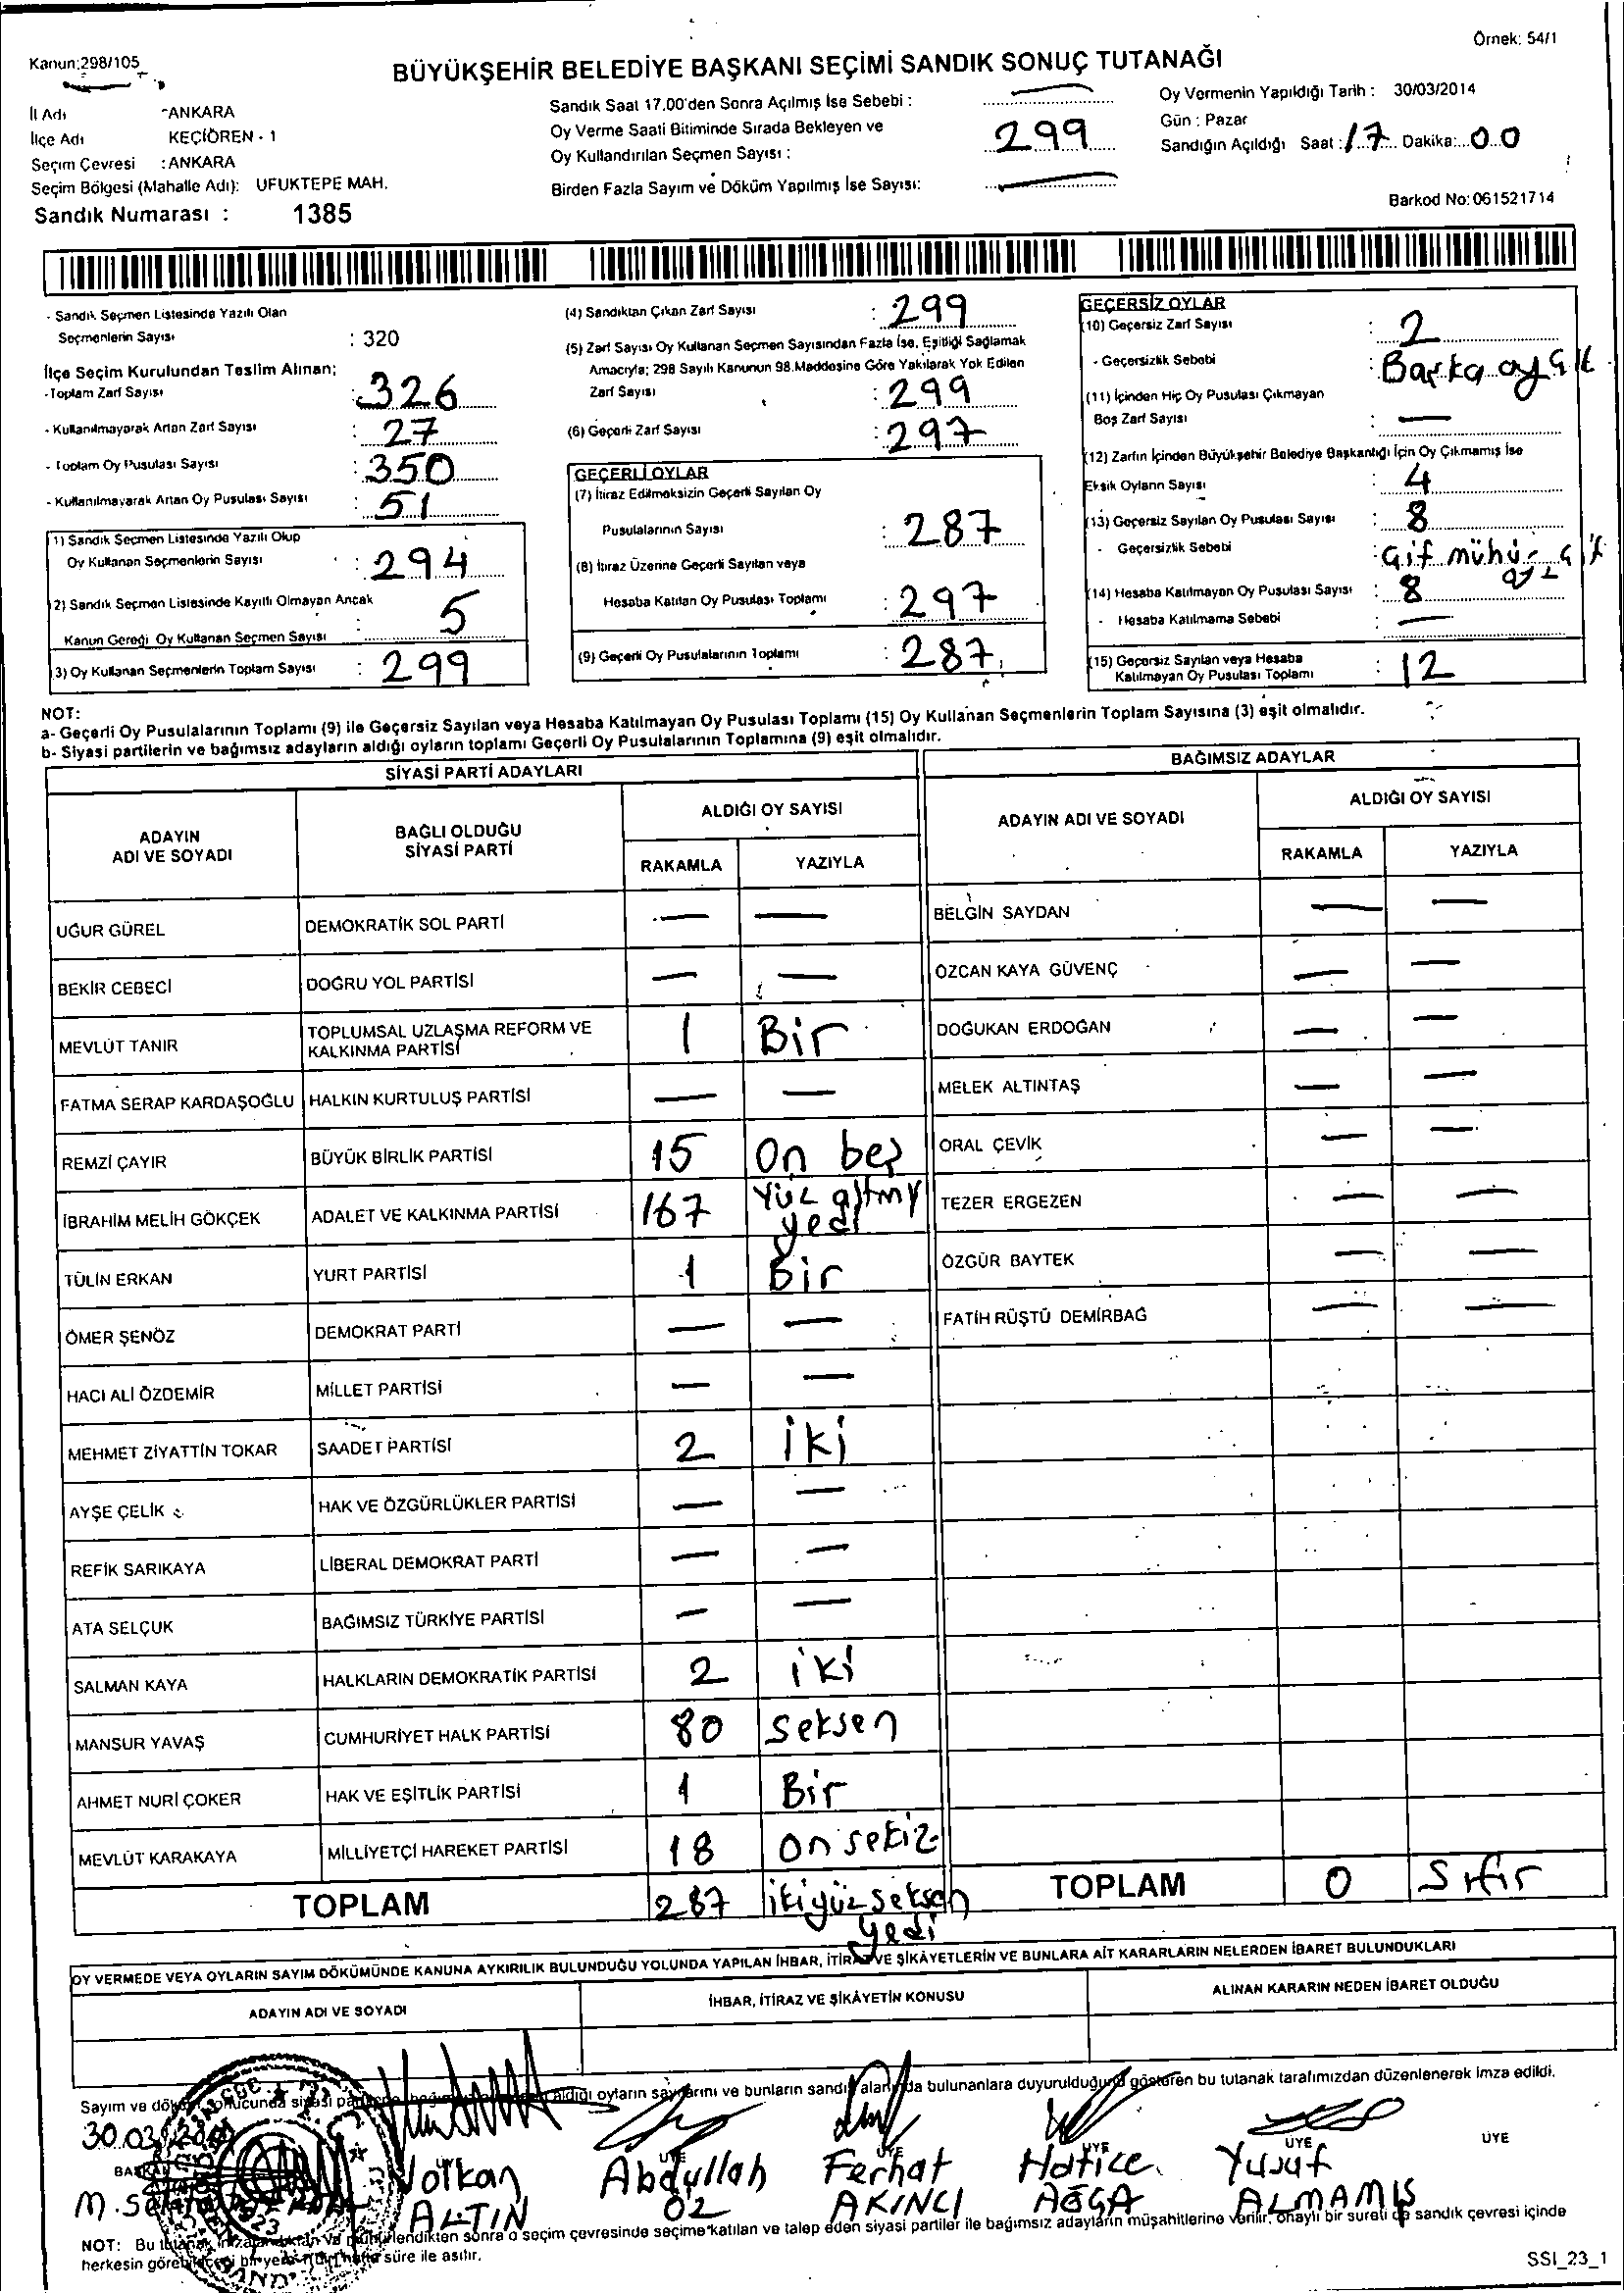 Örnek: 54/1
Kanun:298/105
BÜYÜKŞEHİR BELEDİYE BAŞKANI SEÇİMİ SANDIK SONUÇ TUTANAĞI
İl Adı ANKARA
İlçe Adı KEÇİÖREN - 1
Seçim Çevresi : ANKARA
Seçim Bölgesi (Mahalle Adı): UFUKTEPE MAH.
Sandık Numarası : 1385
Sandık Saat 17.00'den Sonra Açılmış İse Sebebi :
Oy Verme Saati Bitiminde Sırada Bekleyen ve
Oy Kullandırılan Seçmen Sayısı : 299
Birden Fazla Sayım ve Döküm Yapılmış İse Sayısı:
Oy Vermenin Yapıldığı Tarih : 30/03/2014
Gün : Pazar
Sandığın Açıldığı Saat : 17 Dakika: 00
Barkod No: 061521714
- Sandık Seçmen Listesinde Yazılı Olan
Seçmenlerin Sayısı : 320
İlçe Seçim Kurulundan Teslim Alınan;
- Toplam Zarf Sayısı : 326
- Kullanılmayarak Artan Zarf Sayısı : 27
- Toplam Oy Pusulası Sayısı : 350
- Kullanılmayarak Artan Oy Pusulası Sayısı : 51
1) Sandık Seçmen Listesinde Yazılı Olup
Oy Kullanan Seçmenlerin Sayısı : 294
2) Sandık Seçmen Listesinde Kayıtlı Olmayan Ancak
Kanun Gereği Oy Kullanan Seçmen Sayısı : 5
3) Oy Kullanan Seçmenlerin Toplam Sayısı : 299
(4) Sandıktan Çıkan Zarf Sayısı : 299
(5) Zarf Sayısı Oy Kullanan Seçmen Sayısından Fazla İse, Eşitliği Sağlamak
Amacıyla; 298 Sayılı Kanunun 98.Maddesine Göre Yakılarak Yok Edilen
Zarf Sayısı : 299
(6) Geçerli Zarf Sayısı : 297
GEÇERLİ OYLAR
(7) İtiraz Edilmeksizin Geçerli Sayılan Oy
Pusulalarının Sayısı : 287
(8) İtiraz Üzerine Geçerli Sayılan veya
Hesaba Katılan Oy Pusulası Toplamı : 297
(9) Geçerli Oy Pusulalarının Toplamı : 287
GEÇERSİZ OYLAR
(10) Geçersiz Zarf Sayısı : 2
- Geçersizlik Sebebi : Başka oy
(11) İçinden Hiç Oy Pusulası Çıkmayan
Boş Zarf Sayısı : —
(12) Zarfın İçinden Büyükşehir Belediye Başkanlığı İçin Oy Çıkmamış İse
Eksik Oyların Sayısı : 4
(13) Geçersiz Sayılan Oy Pusulası Sayısı : 8
- Geçersizlik Sebebi : Çift mühür
(14) Hesaba Katılmayan Oy Pusulası Sayısı : 8
- Hesaba Katılmama Sebebi : —
(15) Geçersiz Sayılan veya Hesaba
Katılmayan Oy Pusulası Toplamı : 12
NOT:
a- Geçerli Oy Pusulalarının Toplamı (9) ile Geçersiz Sayılan veya Hesaba Katılmayan Oy Pusulası Toplamı (15) Oy Kullanan Seçmenlerin Toplam Sayısına (3) eşit olmalıdır.
b- Siyasi partilerin ve bağımsız adayların aldığı oyların toplamı Geçerli Oy Pusulalarının Toplamına (9) eşit olmalıdır.
SİYASİ PARTİ ADAYLARI
ADAYIN
ADI VE SOYADI
BAĞLI OLDUĞU
SİYASİ PARTİ
ALDIĞI OY SAYISI
RAKAMLA YAZIYLA
UĞUR GÜREL DEMOKRATİK SOL PARTİ — —
BEKİR CEBECİ DOĞRU YOL PARTİSİ — —
MEVLÜT TANIR TOPLUMSAL UZLAŞMA REFORM VE
KALKINMA PARTİSİ 1 Bir
FATMA SERAP KARDAŞOĞLU HALKIN KURTULUŞ PARTİSİ — —
REMZİ ÇAYIR BÜYÜK BİRLİK PARTİSİ 15 On beş
İBRAHİM MELİH GÖKÇEK ADALET VE KALKINMA PARTİSİ 167 Yüz altmış
yedi
TÜLİN ERKAN YURT PARTİSİ 1 Bir
ÖMER ŞENÖZ DEMOKRAT PARTİ — —
HACI ALİ ÖZDEMİR MİLLET PARTİSİ — —
MEHMET ZİYATTİN TOKAR SAADET PARTİSİ 2 iki
AYŞE ÇELİK HAK VE ÖZGÜRLÜKLER PARTİSİ — —
REFİK SARIKAYA LİBERAL DEMOKRAT PARTİ — —
ATA SELÇUK BAĞIMSIZ TÜRKİYE PARTİSİ — —
SALMAN KAYA HALKLARIN DEMOKRATİK PARTİSİ 2 iki
MANSUR YAVAŞ CUMHURİYET HALK PARTİSİ 80 Seksen
AHMET NURİ ÇOKER HAK VE EŞİTLİK PARTİSİ 1 Bir
MEVLÜT KARAKAYA MİLLİYETÇİ HAREKET PARTİSİ 18 on sekiz
TOPLAM 287 ikiyüz seksen
yedi
BAĞIMSIZ ADAYLAR
ADAYIN ADI VE SOYADI
ALDIĞI OY SAYISI
RAKAMLA YAZIYLA
BELGİN SAYDAN — —
ÖZCAN KAYA GÜVENÇ — —
DOĞUKAN ERDOĞAN — —
MELEK ALTINTAŞ — —
ORAL ÇEVİK — —
TEZER ERGEZEN — —
ÖZGÜR BAYTEK — —
FATİH RÜŞTÜ DEMİRBAĞ — —
TOPLAM 0 Sıfır
OY VERMEDE VEYA OYLARIN SAYIM DÖKÜMÜNDE KANUNA AYKIRILIK BULUNDUĞU YOLUNDA YAPILAN İHBAR, İTİRAZ VE ŞİKÂYETLERİN VE BUNLARA AİT KARARLARIN NELERDEN İBARET BULUNDUKLARI
ADAYIN ADI VE SOYADI
İHBAR, İTİRAZ VE ŞİKÂYETİN KONUSU
ALINAN KARARIN NEDEN İBARET OLDUĞU
Sayım ve döküm sonucunda siyasi aldığı oyların sayılarını ve bunların sandık alanında bulunanlara duyurulduğunu gösteren bu tutanak tarafımızdan düzenlenerek imza edildi.
30.03
ÜYE ÜYE ÜYE ÜYE ÜYE
Volkan Abdullah Ferhat Hatice Yusuf
ALTIN ÖZ AKINCI AĞCA ALMAMIŞ
NOT: Bu tutanak sonra o seçim çevresinde seçime katılan ve talep eden siyasi partiler ile bağımsız adayların müşahitlerine verilir, onaylı bir sureti de sandık çevresi içinde
herkesin bir hafta süre ile asılır.
SSI_23_1